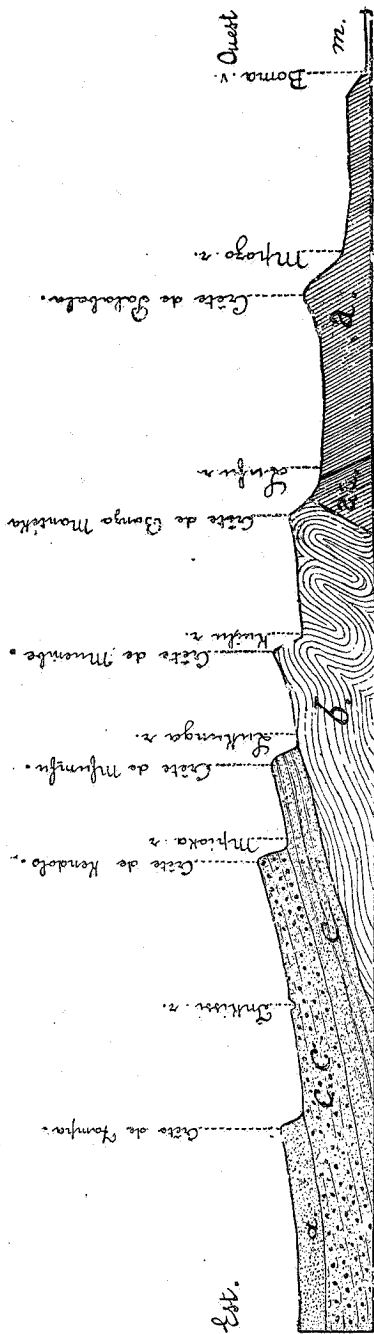 Ouest
m.
Boma. v.
Mpozo. r.
Crête de Palabala.
a.
Lufu r
Crête de Banza Mantéka
Kuilu r.
Crête de Muembe.
b.
Lukunga r.
Crête de Mfumfu.
Mpioka r
Crête de Kendolo.
c
c.c
Inkissi. r.
d.
Est.